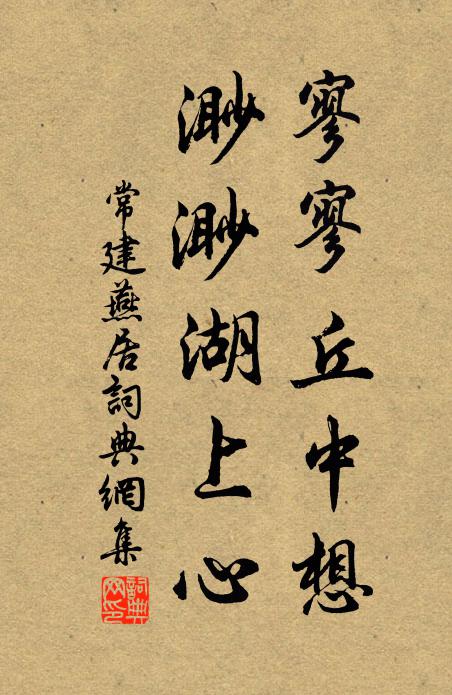 寥寥丘中想
渺渺湖上心
常建燕居詞典網集
詞典網印